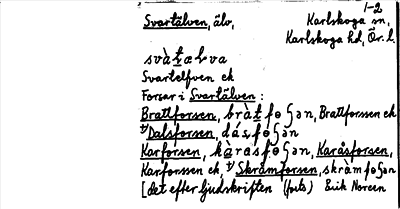 1-2
Svartälven, älv,
Karlskoga sn,
Karlskoga hd, Ör. l.
svàt̲ælva
Svartelfven ek
Forsar i Svartälven:
Brattforsen, bràt̲fɵʃən, Brattforsen ek
Dalsforsen,
Karforsen, Karåsforsen,
Karforssen ek, Skråmforsen, skràmfɵʃən
[det efter ljudskriften (forts) Erik Noreen